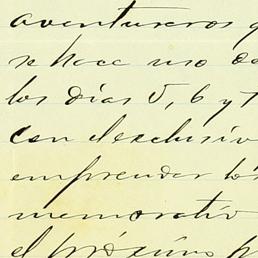 aventureros q
se hace uso de
los días 5, 6 y 7
con el exclusiv
emprender
memorativ
el próximo p